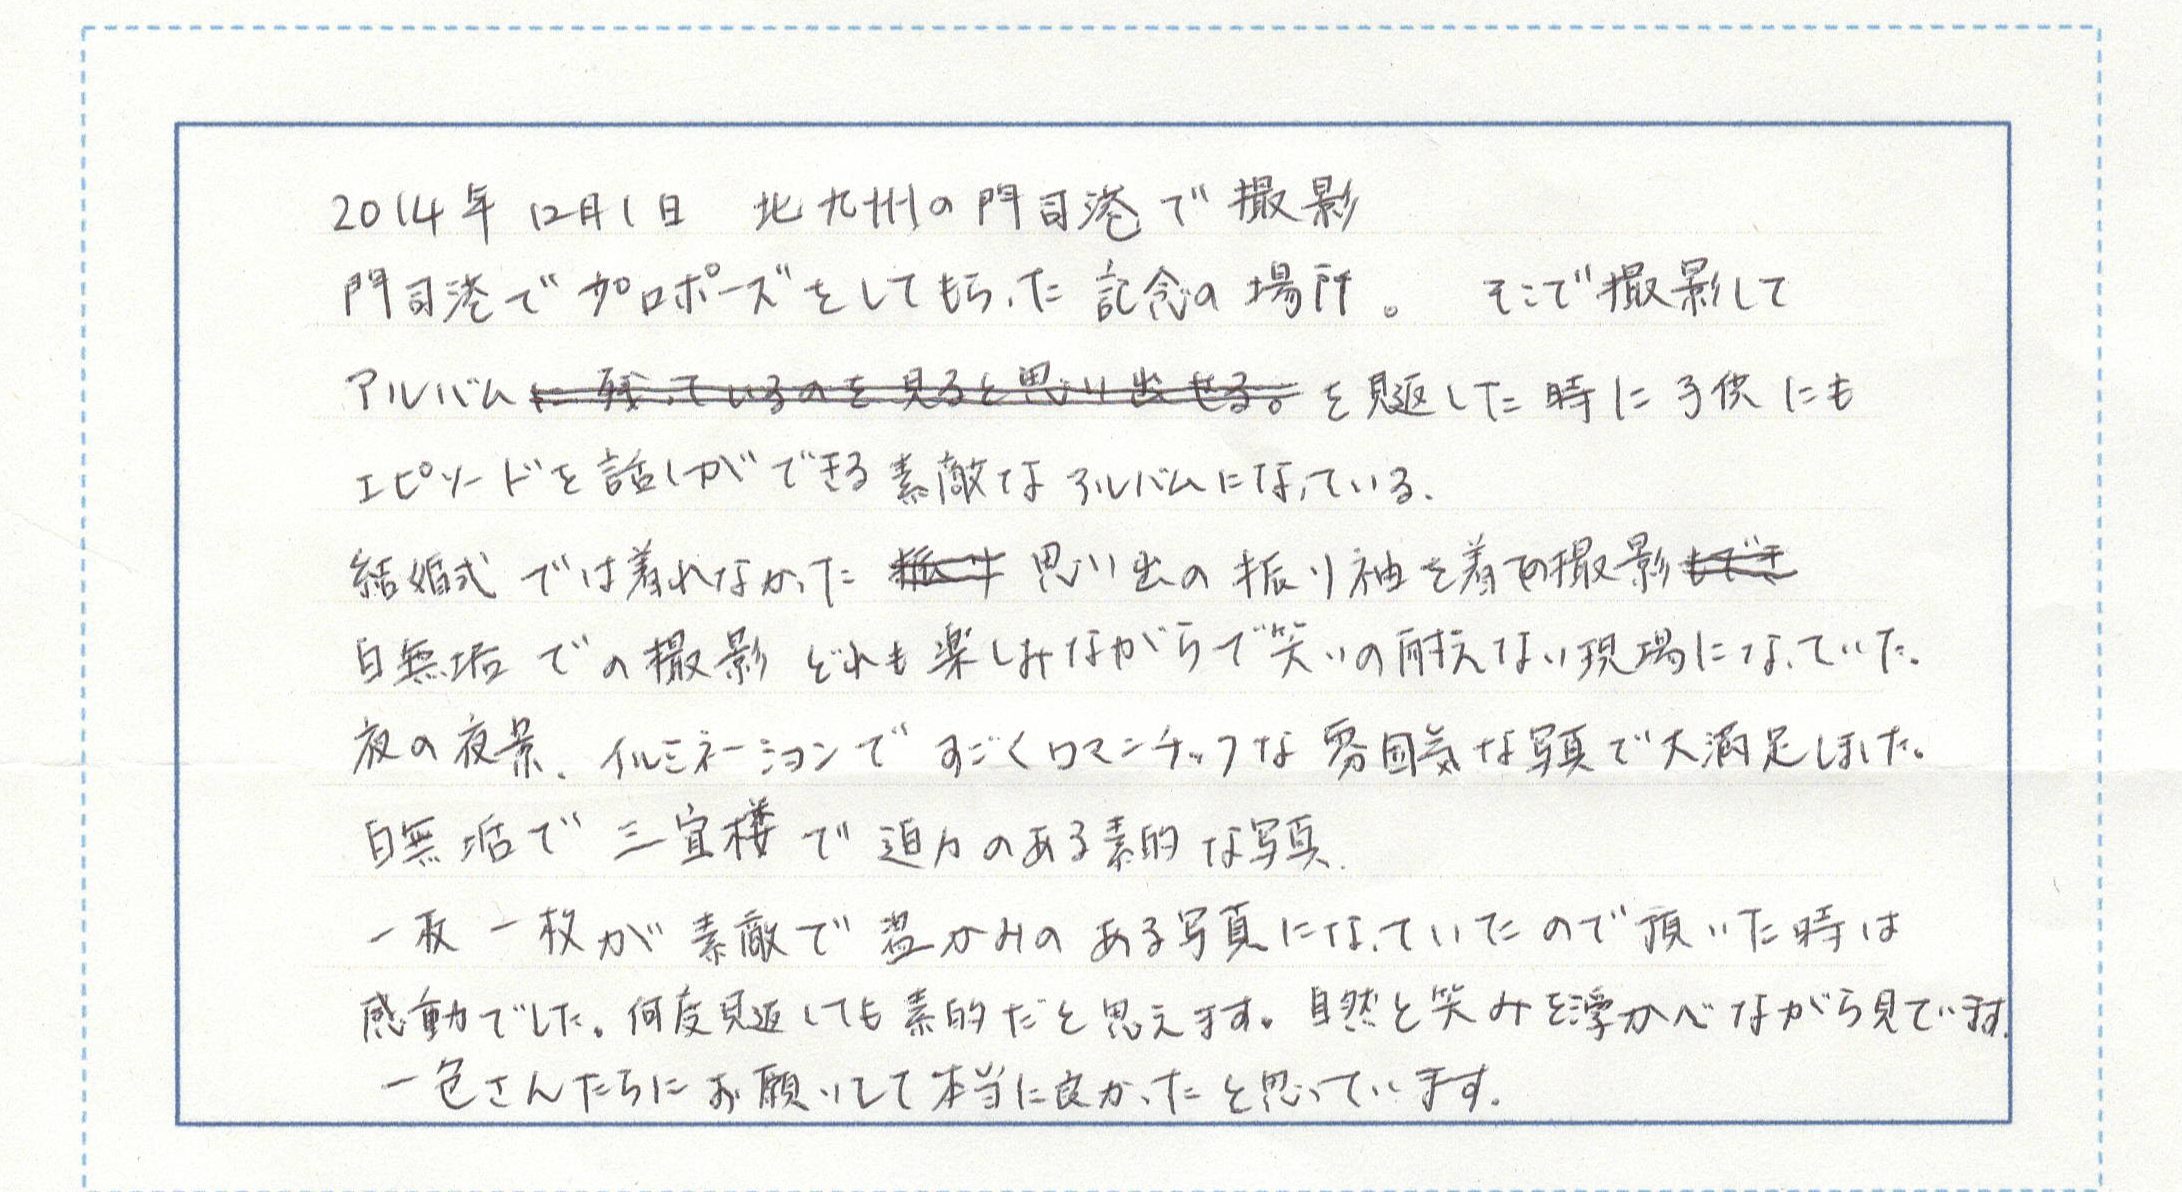 2014年 12月1日 北九州の門司港で撮影
門司港でプロポーズをしてもらった記念の場所。 そこで撮影して
アルバムに残っているのを見ると思い出せる。を見返した時に子供にも
エピソードを話しができる素敵なアルバムになっている.
結婚式では着れなかった 振り 思い出の振り袖を着ての撮影もでき
白無垢での撮影 どれも楽しみながらで笑いの耐えない現場になっていた。
夜の夜景、イルミネーションですごくロマンチックな雰囲気な写真で大満足しました。
白無垢で三宜楼で迫力のある素的な写真.
一枚一枚が素敵で温かみのある写真になっていたので頂いた時は
感動でした。何度見返しても素的だと思えます。自然と笑みを浮かべながら見ています.
一色さんたちにお願いして本当に良かったと思っています.